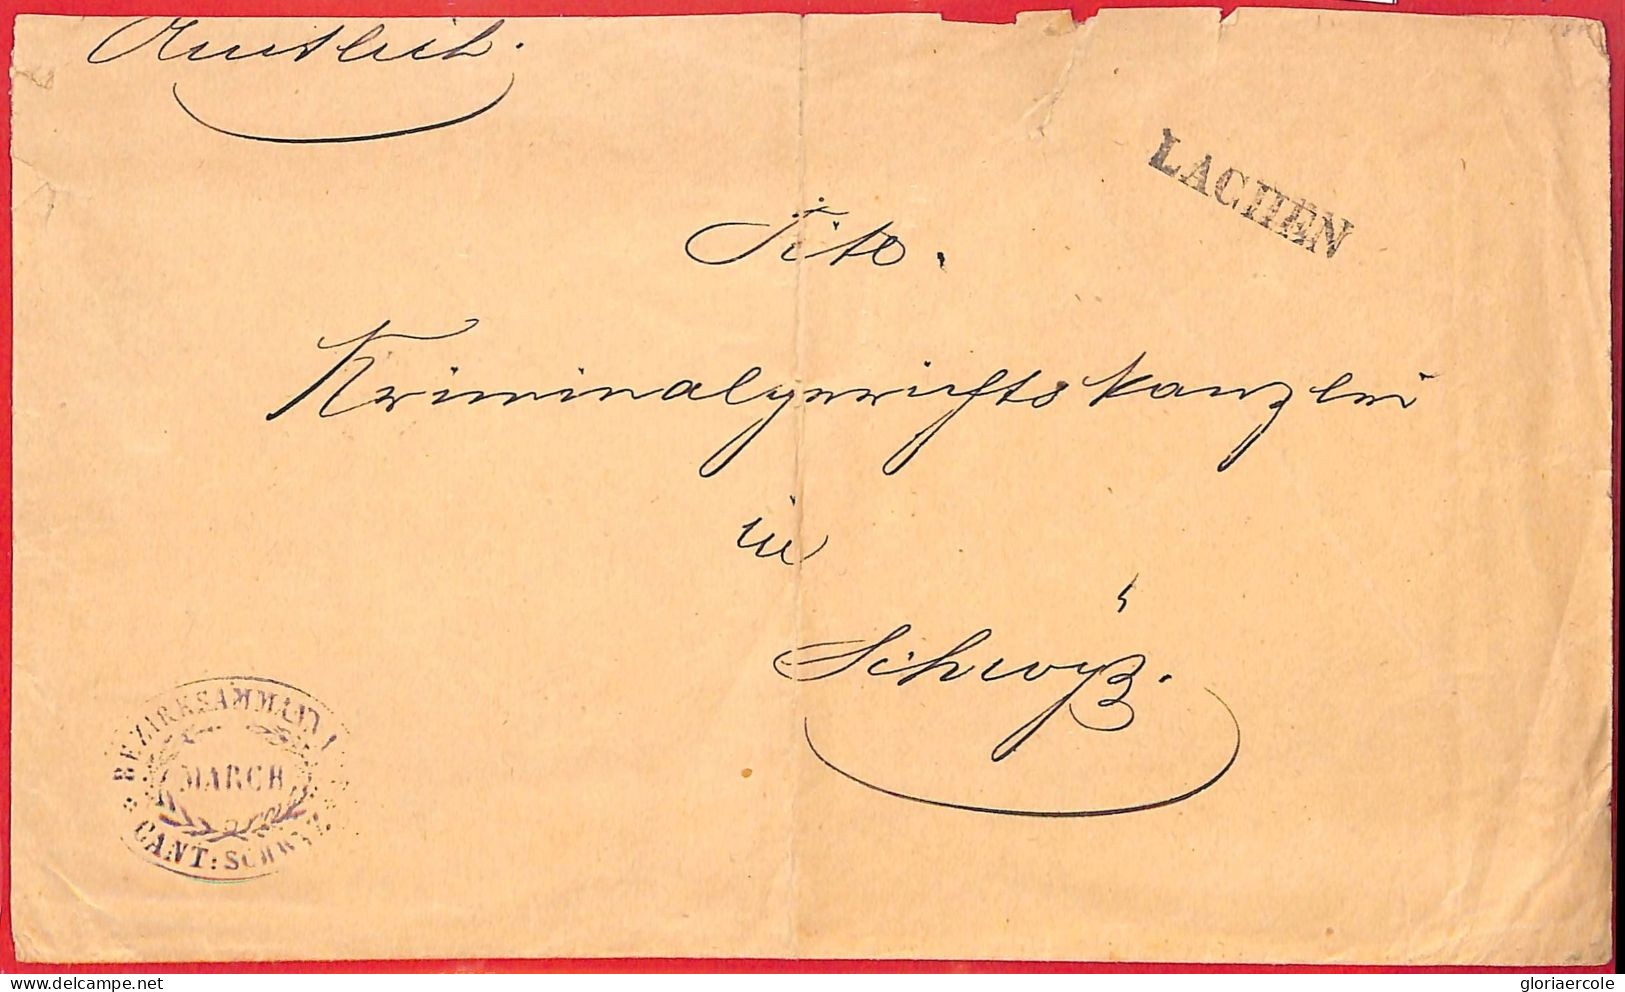 Amtlich.
LACHEN
Tit.
Kriminalgerichtskanzlei
in
Schwÿz.
BEZIRKSAMMANN
MARCH
CANT: SCHWYZ
gloriaercole